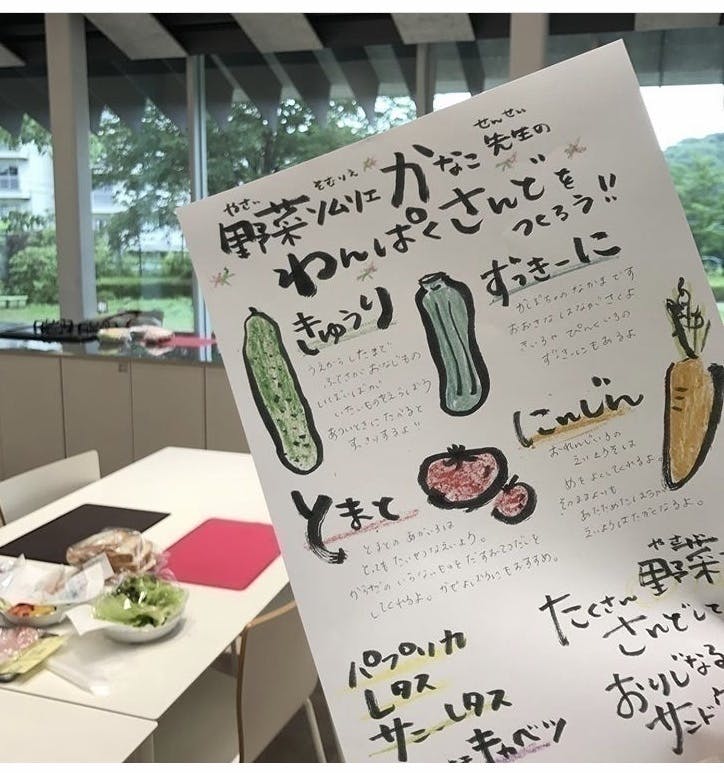 やさい そむりえ せんせい
野菜ソムリエ かなこ先生の
わんぱくさんどを
つくろう!!
きゅうり
うえからしたまで
ふとさがおなじもの
いぼいぼが
いたいものをえらぼう
あついときにたべると
すっきりするよ!!
ずっきーに
かぼちゃのなかまです
おおきさはながさくよ
きいろや
ずっきーにもあるよ
にんじん
おーれんじいろの
えいようそは
めをよくしてくれるよ。
そのままよりも
あたためた
えいようはたかくなるよ。
とまと
とまとのあかいろは
とってもたいせつなえいよう。
からだのいらないものをだすおてつだいを
してくれるよ。かぜよぼうにもおすすめ。
パプリカ
レタス
サニーレタス
キャベツ
やさい
野菜
たくさん
さんどして
おりじなる
サンド